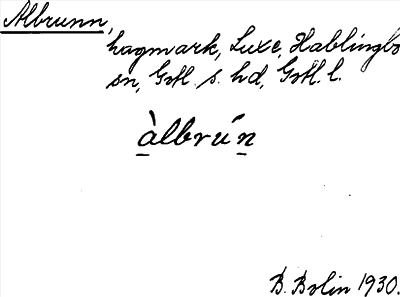 Albrunn,
hagmark, Luxe, Hablingbo
sn, Gotl. s. hd, Gotl. l.
àlbrún
B. Bolin 1930.